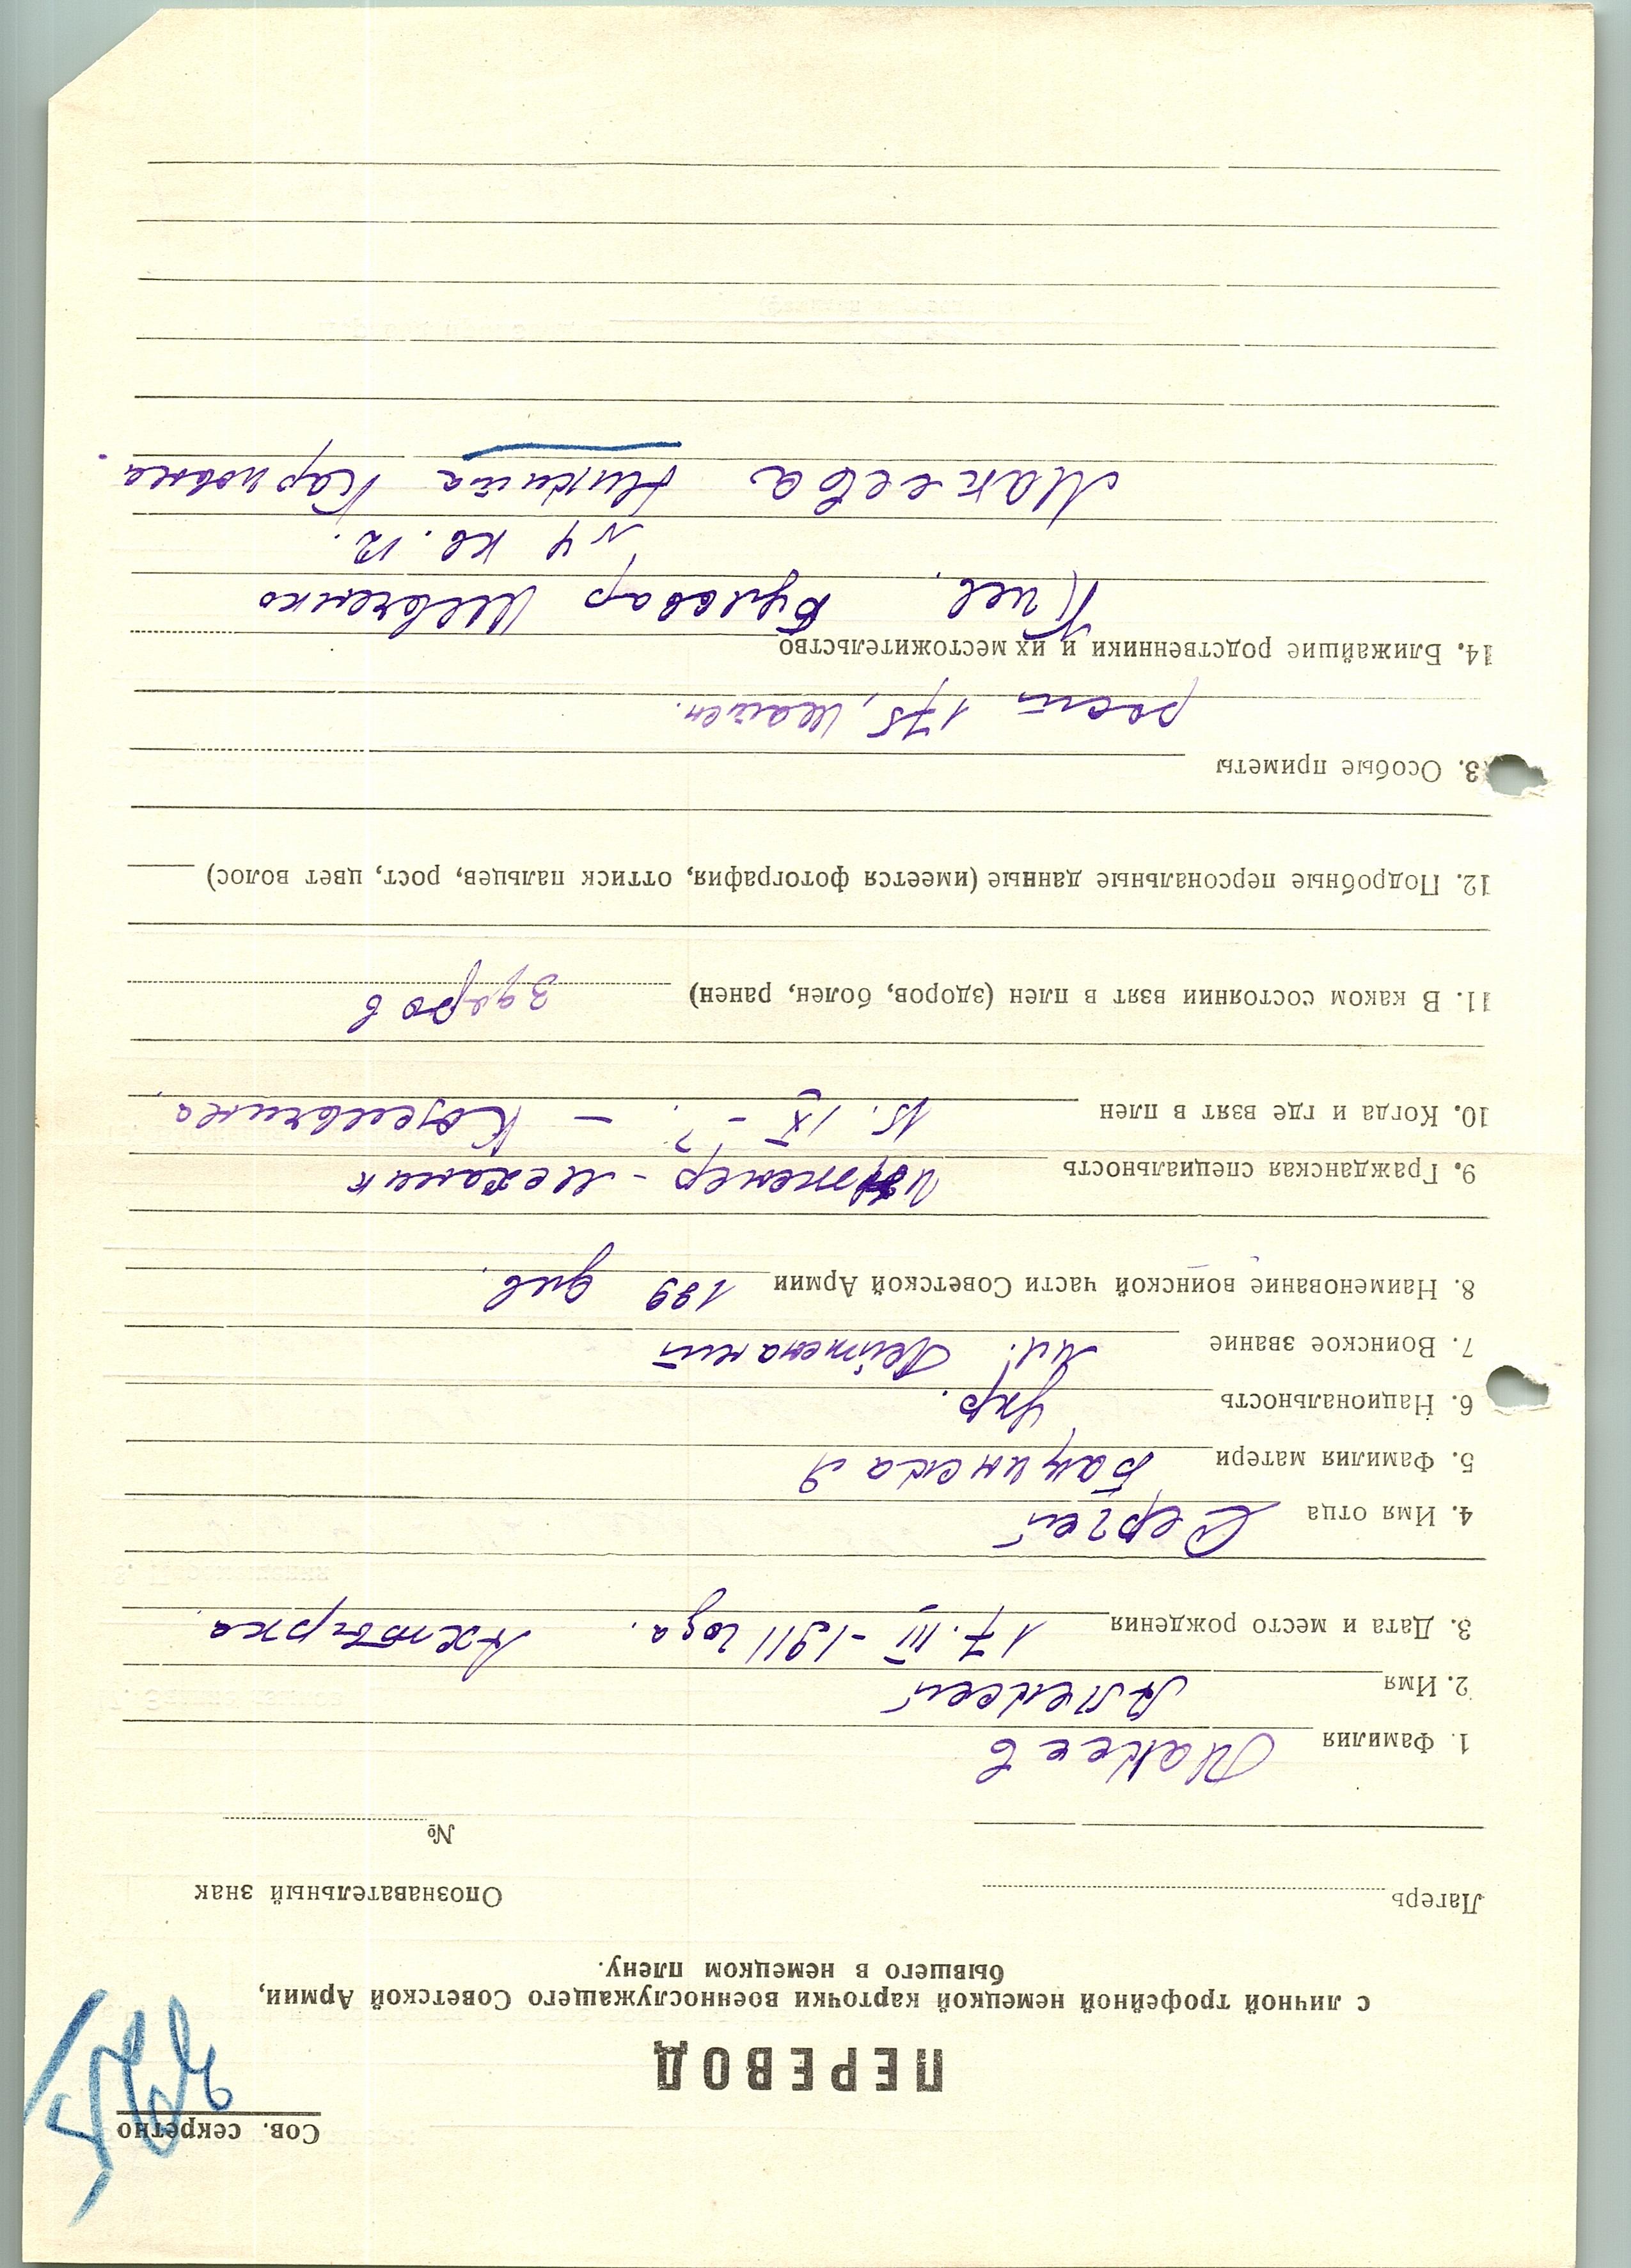 Сов. секретно
ПЕРЕВОД
с личной трофейной немецкой карточки военнослужащего Советской Армии,
бывшего в немецком плену.
Лагерь Опознавательный знак
№
1. Фамилия Макеев
2. Имя Алексей
3. Дата и место рождения 17. III - 1911 года. Ахтырка.
4. Имя отца Сергей
5. Фамилия матери Бацинская
6. Национальность Укр.
7. Воинское звание Мл. Лейтенант
8. Наименование воинской части Советской Армии 199 див.
9. Гражданская специальность Инженер-механик
10. Когда и где взят в плен 15. IX - ?. —
11. В каком состоянии взят в плен (здоров, болен, ранен) здоров
12. Подробные персональные данные (имеется фотография, оттиск пальцев, рост, цвет волос)
3. Особые приметы
рост 175,
14. Ближайшие родственники и их местожительство
Киев, Бульвар Шевченко
№ 4 кв. 12.
Макеева Никита Карповна